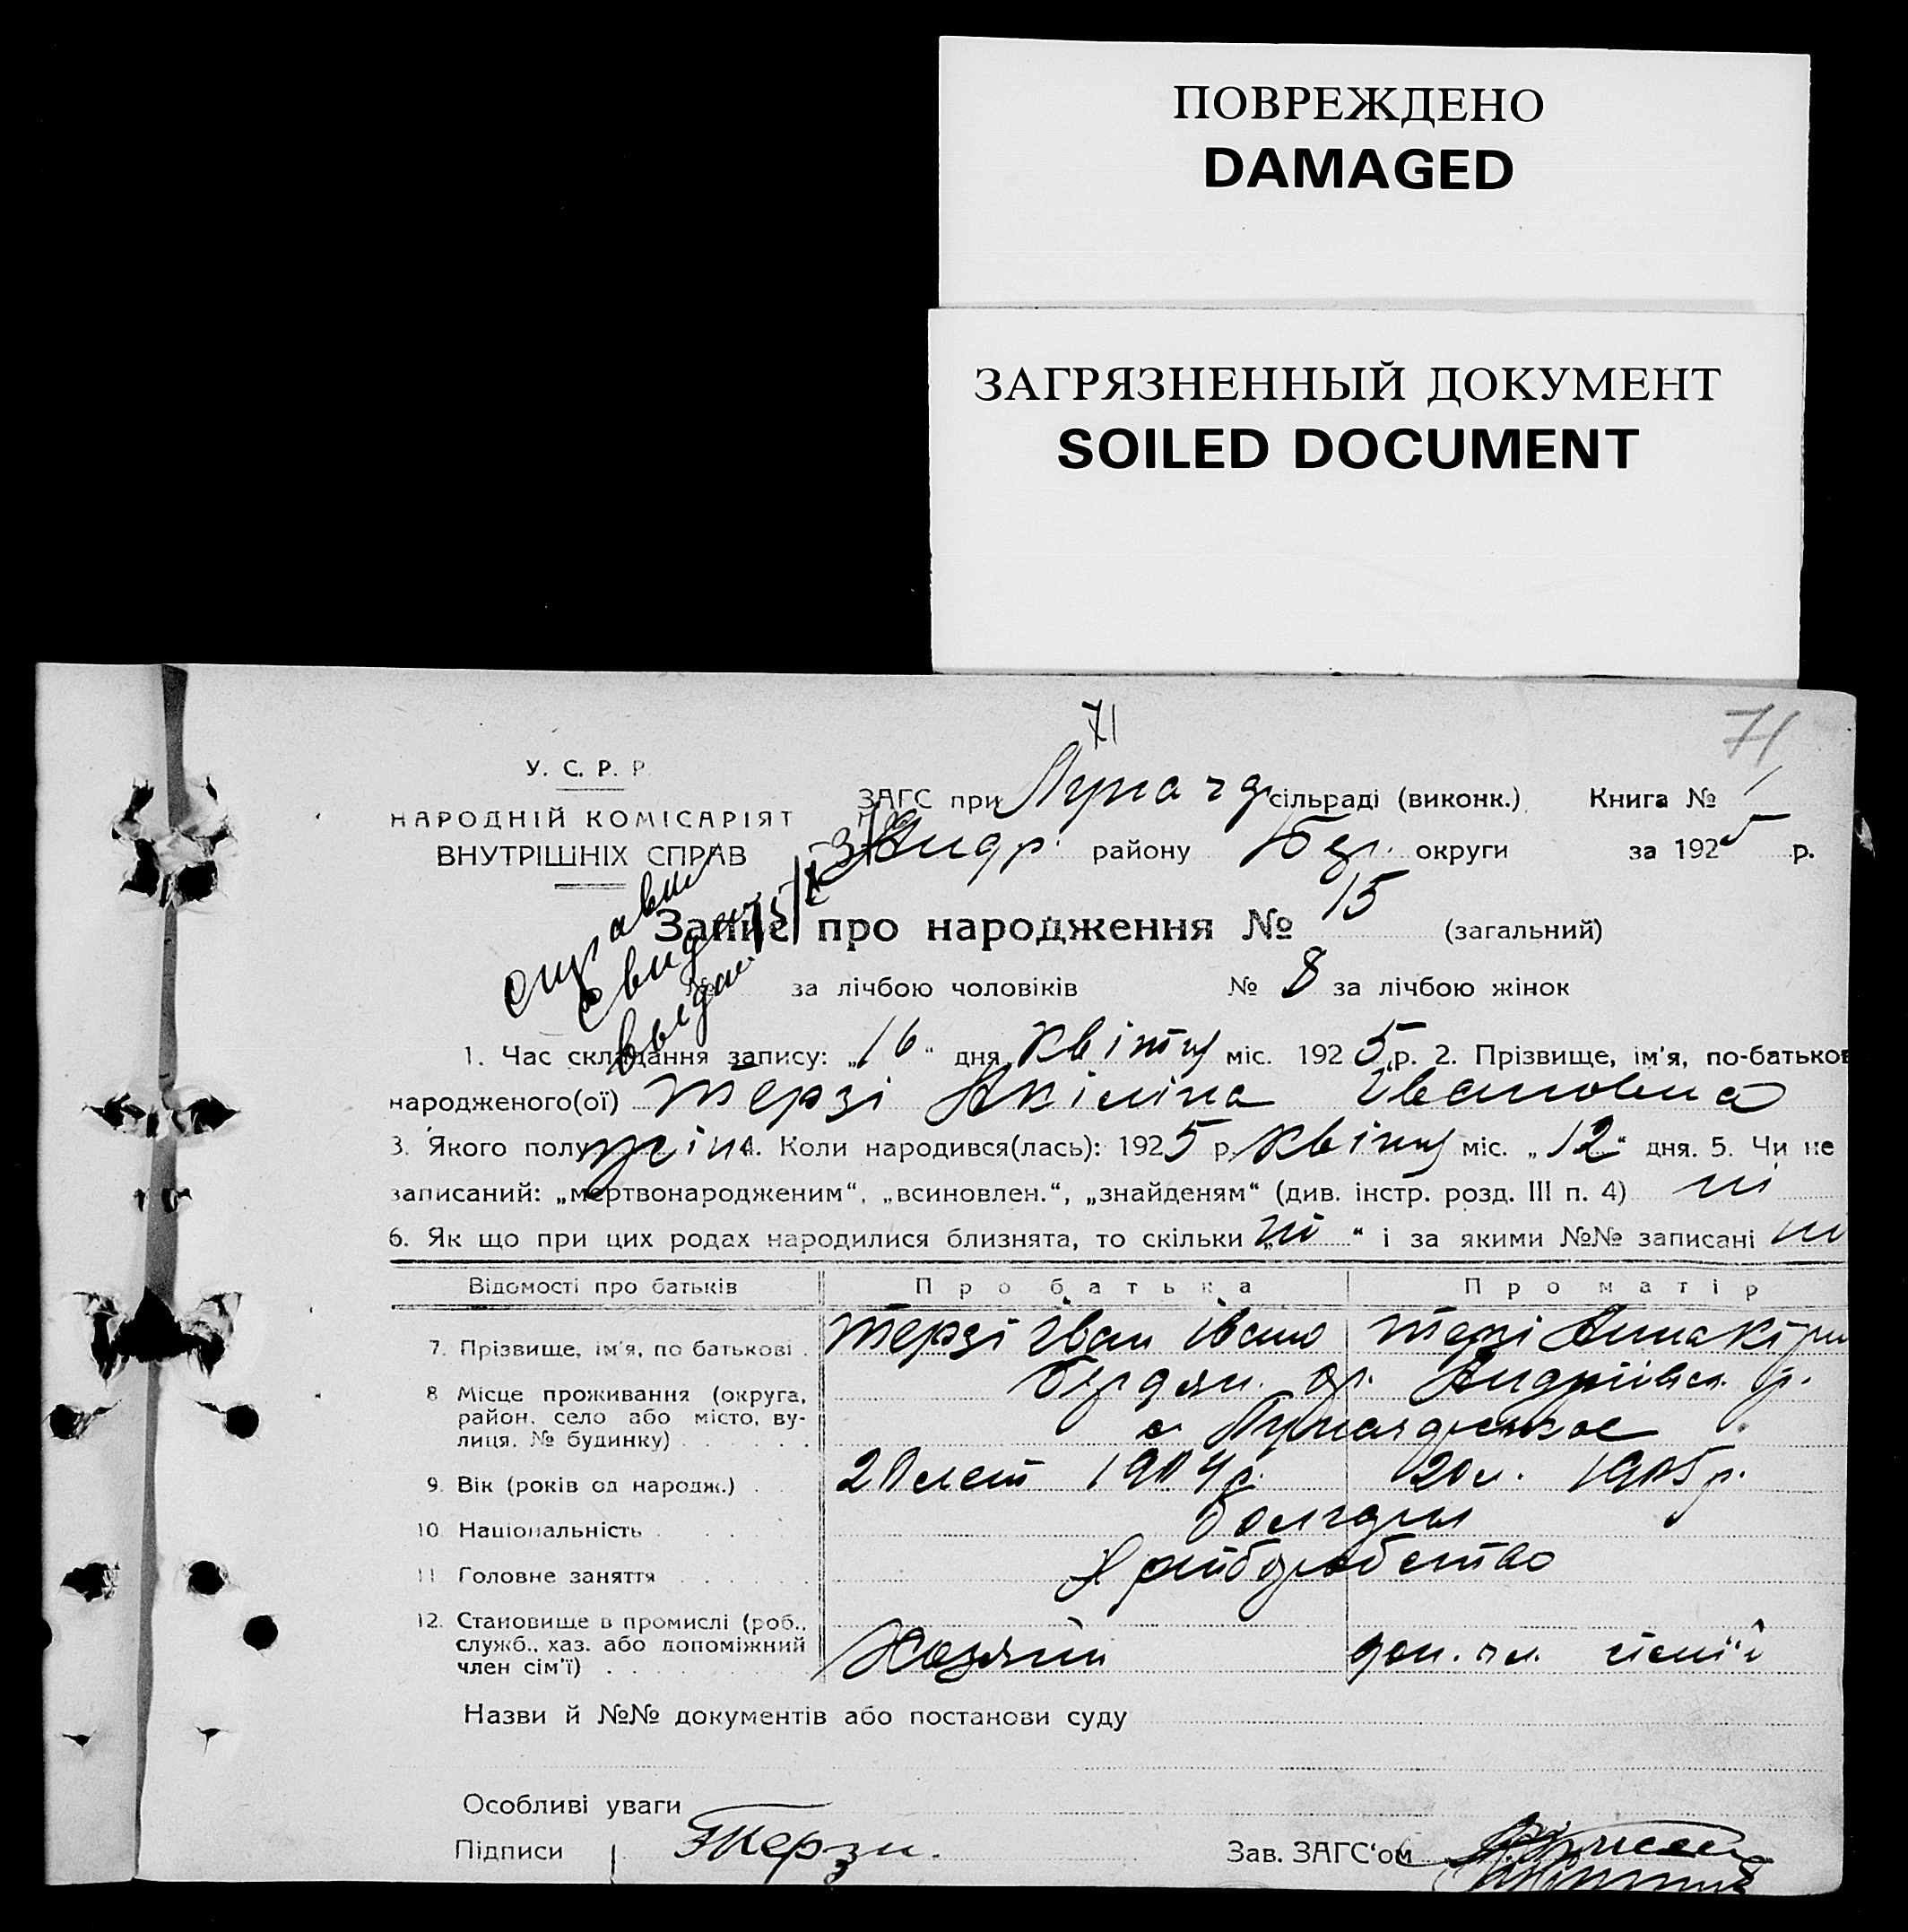 ПОВРЕЖДЕНО
DAMAGED
ЗАГРЯЗНЕННЫЙ ДОКУМЕНТ
SOILED DOCUMENT
71
71
У. С. Р. Р.
НАРОДНІЙ КОМІСАРІЯТ
ВНУТРІШНІХ СПРАВ
ЗАГС при сільраді (виконк.) Книга № 1
Андр. району Бер. округи за 1925 р.
Запис про народження № 15 (загальний)
за лічбою чоловіків № 8 за лічбою жінок
1. Час складання запису: „16" дня квітня міс. 1925 р. 2. Прізвище, ім'я, по-батьков
народженого(ої) Терзі Акіліна Івановна
3. Якого полу жін. 4. Коли народився(лась): 1925 р. квітня міс. „12" дня. 5. Чи не
записаний: „мертвонародженим", „всиновлен.", „знайденям" (див. інстр. розд. III п. 4) ні
6. Як що при цих родах народилися близнята, то скільки „ні" і за якими №№ записані ні
Відомості про батьків Про батька Про матір
7. Прізвище, ім'я, по батькові . Терзі Іван Івано Терзі Анна
8 Місце проживання (округа, Бердян. ок. Андріівск. р.
район, село або місто, ву- с.
лиця, № будинку) . . . . . .
9. Вік (років од народж.) . . 20 лет 1904 р. 20 л. 1905 р.
10. Національність . . . . . болгари
11 Головне заняття . . . . . Хліборобство
12. Становище в промислі (роб.,
служб., хаз. або допоміжний
член сім'ї) . . . . . . . Хозяін доп. чл. сімії
Назви й №№ документів або постанови суду
Особливі уваги
Підписи Терзи. Зав. ЗАГС'ом